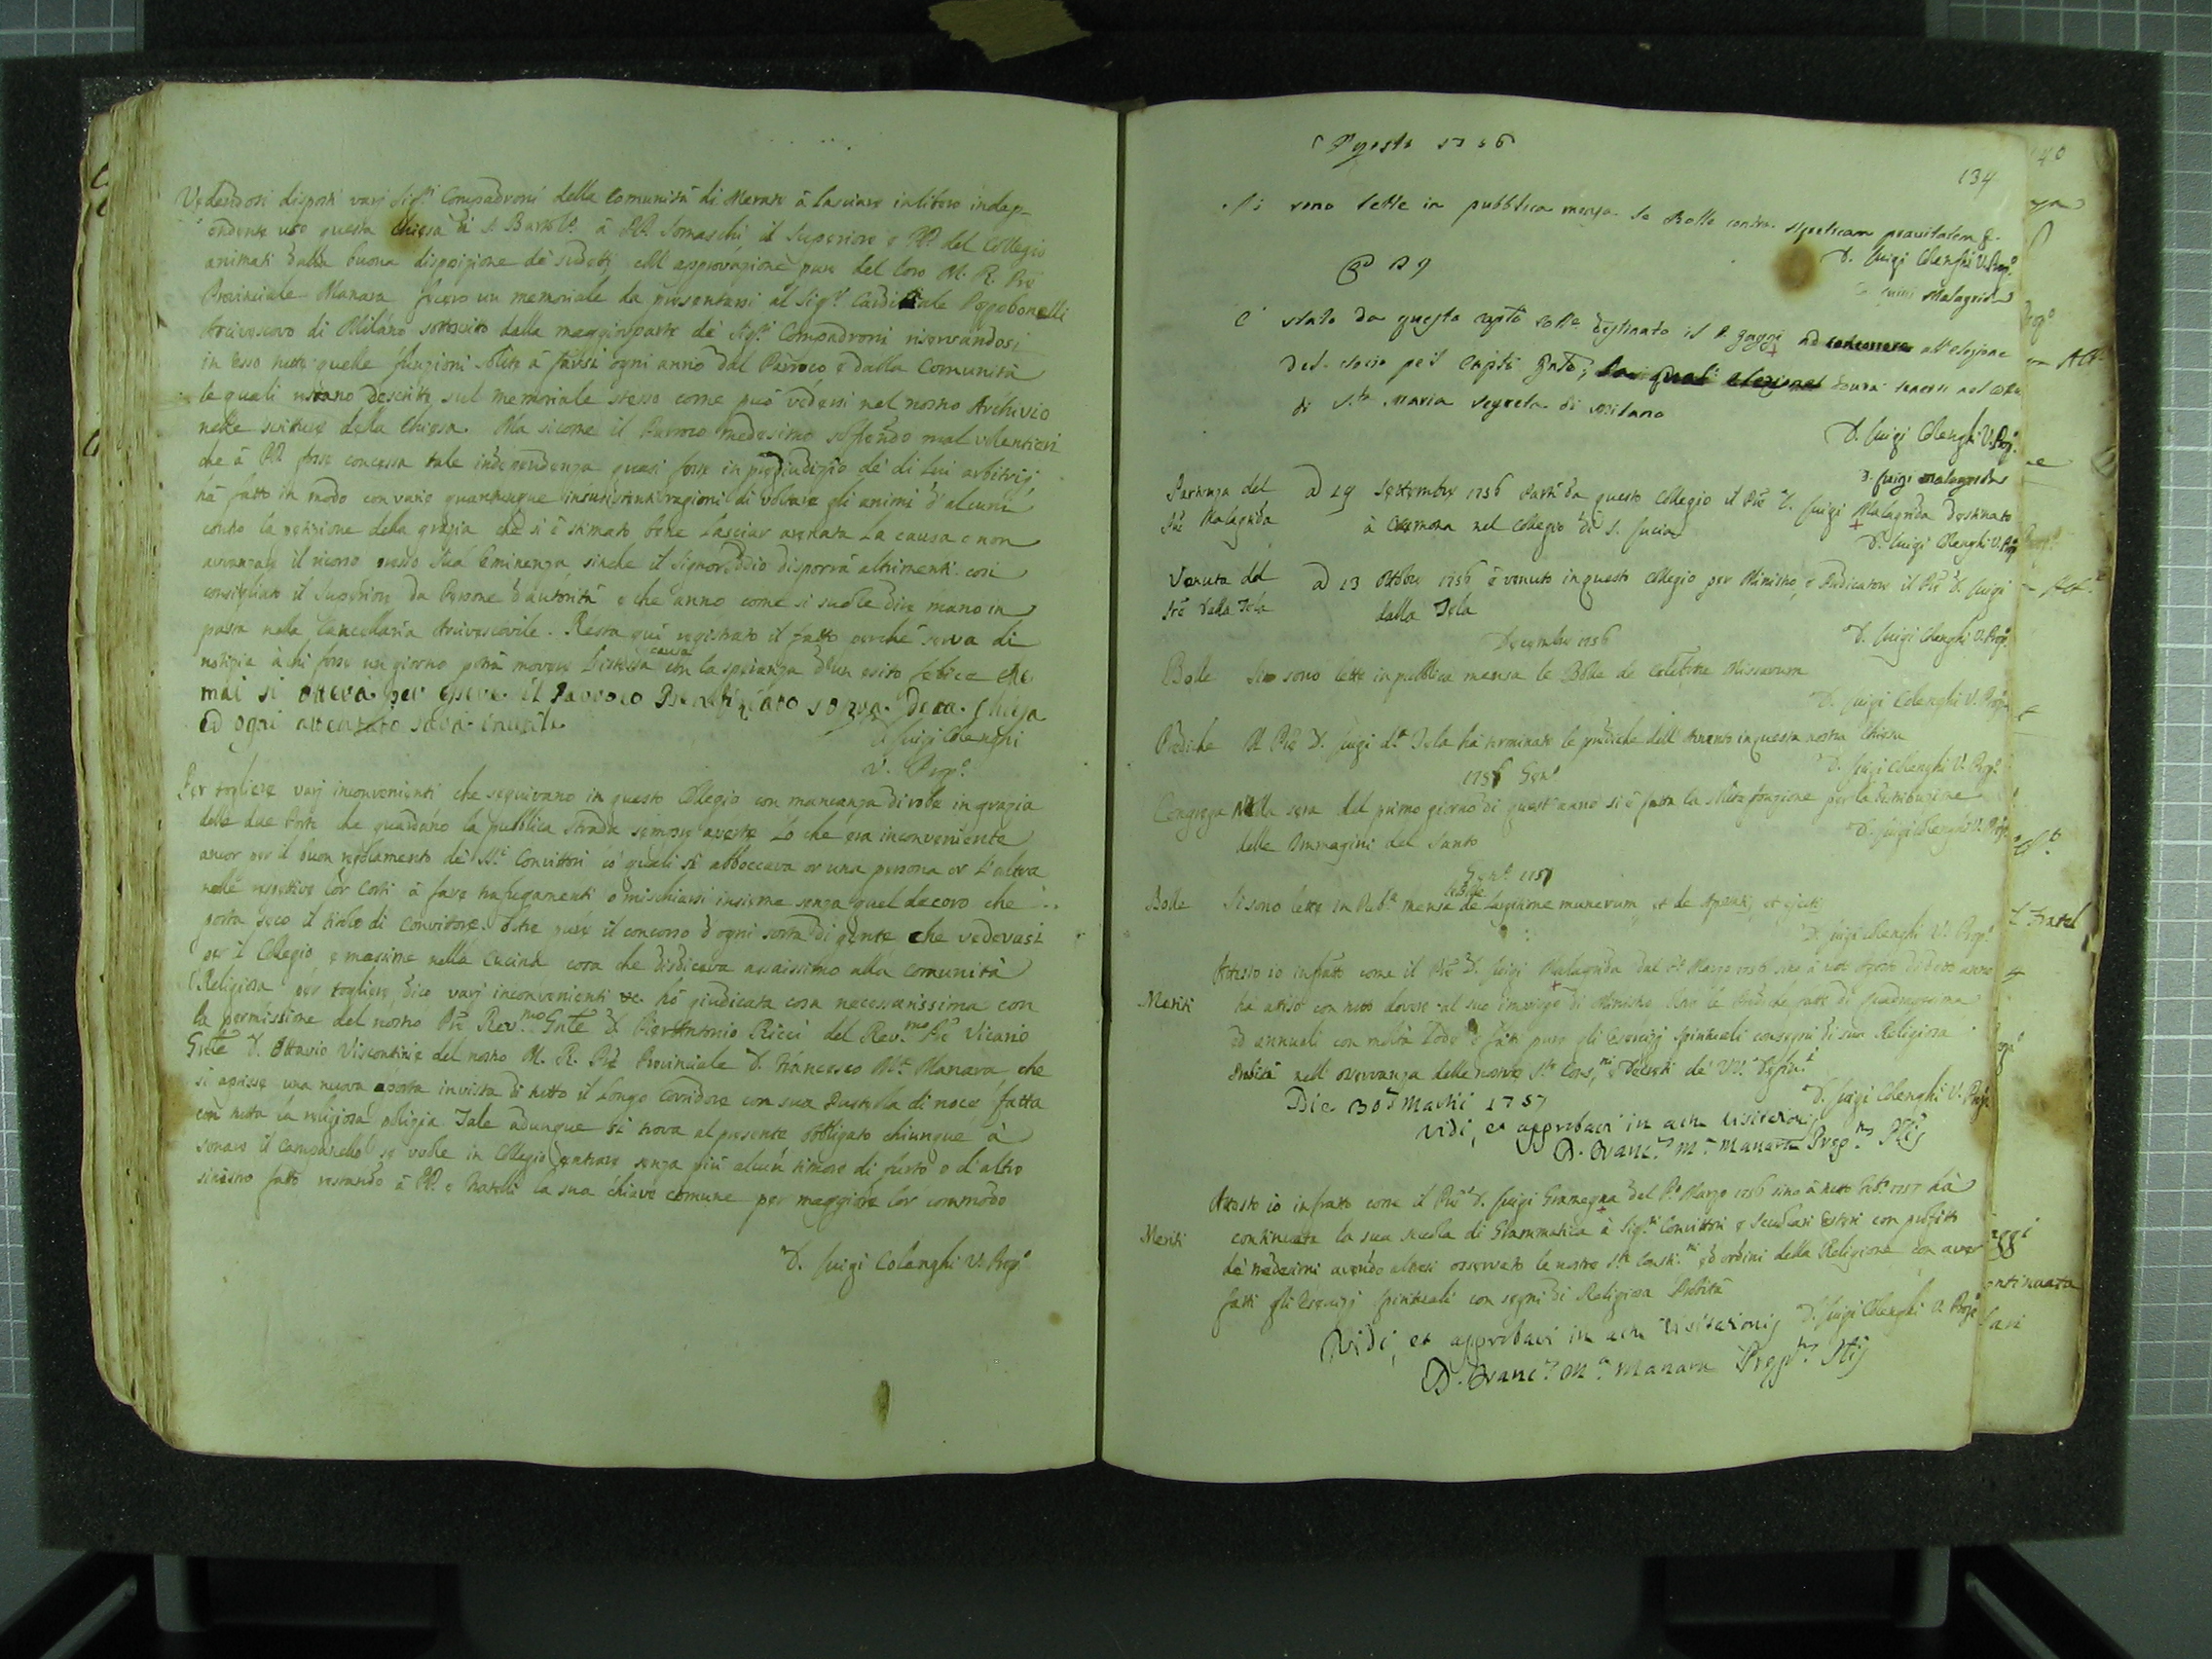 Vedendosi disposti varj Sig.ri Compadroni della Comunità di Merate à lasciare in libero indep-
endente uso questa Chiesa di S. Bart.o à PP. Somaschi, il Superiore e PP. del Collegio
animati dalla buona disposizione de sudetti, coll approvazione pure del loro M. R. Pre
Provinciale Manara fecero un memoriale da presentarsi al Sig.r Cardinale Pozzobonelli
Arcivescovo di Milano sottoscritto dalla maggior parte de Sig.ri Compadroni riservandosi
in esso tutte quelle funzioni solite à farsi ogni anno dal Parroco e dalla Comunità
le quali restano descritte sul memoriale stesso come può vedersi nel nostro Archivio
nelle scritture della Chiesa. Ma sicome il Parroco medesimo soffrendo mal volentieri
che à PP. fosse concessa tale independenza quasi fosse in pregiudizio de di Lui arbitrij
hà fatto in modo con varie quantunque insussistenti ragioni di voltare gli animi d'alcuni
contro la petizione della grazia che si è stimato bene lasciar arenata la causa e non
avvanzare il ricorso presso Sua Eminenza sinche il Signor Iddio disporrà altrimenti così
consigliato il Superiore da Persone d'autorità e che anno come si suole dire mano in
pasta nella Cancellaria Arcivescovile. Resta quì registrato il fatto perche serva di
notizia à chi forse un giorno potrà movere l'istessa causa con la speranza d'un esito felice che
mai si otterà per essere il Parroco Beneficiato sopra detta Chiesa
ed ogni attentato sarà inutile
D. Luigi Colenghi
V. Prep.o
Per togliere varj inconvenienti che seguivano in questo Collegio con mancanza di robe in grazia
delle due Porte che guardano la pubblica strada sempre aperte Lo che era inconveniente
ancor per il buon regolamento de SS.i Convittori co' quali si abboccava or una persona or l'altra
nelle rispettive lor Corti à fare trapegamenti o mischiarsi insieme senza quel decoro che
porta seco il titolo di Convittore. Oltre pure il concorso d'ogni sorta di gente che vedevasi
per il Collegio e massime nella Cucina cosa che disdiceva assaissimo alla Comunità
Religiosa per togliere dico varj inconvenienti &c. hò giudicata cosa necessarissima con
la permissione del nostro Pre Rev.mo Gnle D. Pier Antonio Ricci del Rev.mo Pre Vicario
Gnle D. Ottavio Visconti e del nostro M. R. Pre Provinciale D. Francesco M.a Manara che
si aprisse una nuova porta in vista di tutto il longo Corridore con sua Pusterla di noce fatta
con tutta la religiosa pulizia Tale adunque si trova al presente obbligato chiunque à
sonare il Campanello se vuole in Collegio entrare senza più alcun timore di furto o d'altro
sinistro fatto restando à PP. e Fratelli la sua chiave comune per maggiore lor commodo
D. Luigi Colenghi V. Prep.o
Agosto 1756
134
Si sono lette in pubblica mensa le Bolle contra hereticam pravitatem &.
D. Luigi Colenghi V. Prep.o
D. Luigi Malagrida
29
E' stato da questo capto coll.e destinato il P. Gaggi ad concorrere all'elezione
del socio pe'l capto gnle, la qual elezione dovrà tenersi nel Coll.o
di S.ta Maria segreta di Milano
D. Luigi Colenghi V. Prep.o
D. Luigi Malagrida
Partenza del Pre Malagrida
ad 19 Settembre 1756 Partì da questo Collegio il Pre D. Luigi Malagrida destinato
à Cremona nel Collegio di S. Lucia
D. Luigi Colenghi V. Prep.o
Venuta del Pre dalla Tela
ad 13 Ottobre 1756 è venuto in questo Collegio per Ministro, e Predicatore il Pre D. Luigi
dalla Tela
D. Luigi Colenghi V. Prep.o
Decembre 1756
Bolle Si sono lette in pubblica mensa le Bolle de Celebrne Missarum
D. Luigi Colenghi V. Prep.o
Prediche Il Pre D. Luigi d.a Tela hà terminate le prediche dell'Avvento in questa nostra Chiesa
D. Luigi Colenghi V. Prep.o
1757 Gen.o
Congrega Nella sera del primo giorno di quest'anno si è fatta la solita funzione per la distribuzione
delle Immagini del Santo
D. Luigi Colenghi V. Prep.o
Gen.o 1757
Bolle Si sono lette in Pub.a mensa le Bolle de Largitione munerum, et de Apostatis, et ejectis
D. Luigi Colenghi V. Prep.o
Meriti
Attesto io infratto come il Pre D. Luigi Malagrida dal P.o Marzo 1756 sino à tutto Agosto di detto anno
ha atteso con tutto dovere al suo impiego di Ministro, Fatte le Prediche parte di Quadragesima
ed annuali con molta Lode e fatti pure gli esercizj Spirituali con segni di sua Religiosa
Probità nell'osservanza delle nostre S.te Cons.ni e Decreti de VV. Defin.i
D. Luigi Colenghi V. Prep.o
Die 30 Martii 1757
Vidi, et approbavi in actu visitationis
D. Franc.s M.a Manara Prep.tus Plis
Meriti
Attesto io infratto come il Pre D. Luigi Gramegna dal P.o Marzo 1756 sino à tutto Feb.o 1757 hà
continuata la sua scuola di Grammatica à Sig.ri Convittori e Secolari Esteri con profitto
de medesimi avendo altresi osservato le nostre S.te Constit.ni ed ordini della Religione con aver
fatti gli Esercizj spirituali con segni di Religiosa Probità
D. Luigi Colenghi V. Prep.o
Vidi, et approbavi in actu visitationis
D. Franc.s M.a Manara Prep.tus Plis